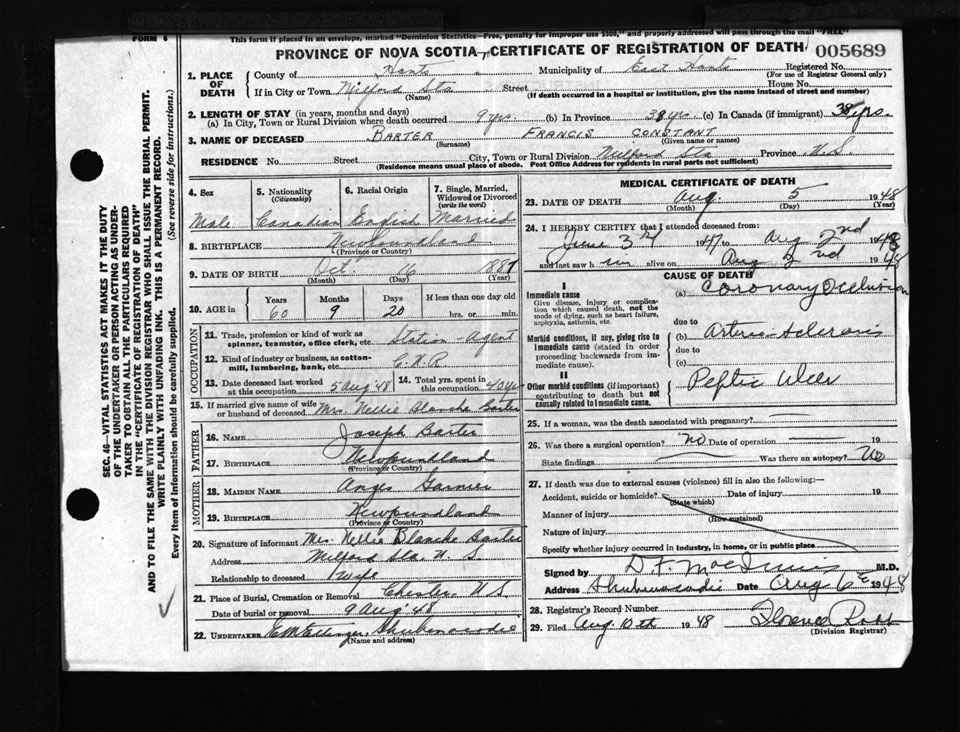 FORM 6
This form if placed in an envelope, marked "Dominion Statistics—Free, penalty for improper use $300," and properly addressed will pass through the mail "FREE"
PROVINCE OF NOVA SCOTIA, CERTIFICATE OF REGISTRATION OF DEATH 005689
1. PLACE OF DEATH County of Hants Municipality of East Hants Registered No.
(For use of Registrar General only)
If in City or Town Milford Sta Street House No.
(Name) (If death occurred in a hospital or institution, give the name instead of street and number)
2. LENGTH OF STAY (in years, months and days)
(a) In City, Town or Rural Division where death occurred 9 yrs. (b) In Province 38 yrs. (c) In Canada (if immigrant) 38 yrs.
3. NAME OF DECEASED BARTER FRANCIS CONSTANT
(Surname) (Given name or names)
RESIDENCE No. Street City, Town or Rural Division Milford Sta Province N.S.
(Residence means usual place of abode. Post Office Address for residents in rural parts not sufficient)
4. Sex 5. Nationality (Citizenship) 6. Racial Origin 7. Single, Married, Widowed or Divorced (write the word)
Male Canadian English Married
8. BIRTHPLACE Newfoundland
(Province or Country)
9. DATE OF BIRTH Oct. 16 1887
(Month) (Day) (Year)
10. AGE in Years Months Days If less than one day old
60 9 20 hrs. or min.
OCCUPATION
11. Trade, profession or kind of work as spinner, teamster, office clerk, etc. Station-Agent
12. Kind of industry or business, as cotton-mill, lumbering, bank, etc. C.N.R
13. Date deceased last worked at this occupation 5 Aug '48 14. Total yrs. spent in this occupation 40 yrs
15. If married give name of wife or husband of deceased Mrs. Nellie Blanche Barter
FATHER
16. NAME Joseph Barter
17. BIRTHPLACE Newfoundland
(Province or Country)
MOTHER
18. MAIDEN NAME
19. BIRTHPLACE Newfoundland
(Province or Country)
20. Signature of informant Mrs. Nellie Blanche Barter
Address Milford Sta. N.S.
Relationship to deceased Wife
21. Place of Burial, Cremation or Removal Chester N.S.
Date of burial or removal 9 Aug '48
22. UNDERTAKER Shubenacadie
(Name and address)
MEDICAL CERTIFICATE OF DEATH
23. DATE OF DEATH Aug. 5 1948
(Month) (Day) (Year)
24. I HEREBY CERTIFY that I attended deceased from:
June 3rd 1947 to Aug 2nd 1948
and last saw him alive on Aug 2nd 1948
CAUSE OF DEATH
I
Immediate cause
Give disease, injury or complication which caused death, not the mode of dying, such as heart failure, asphyxia, asthenia, etc.
(a) Coronary Occlusion
due to
Morbid conditions, if any, giving rise to immediate cause (stated in order proceeding backwards from immediate cause).
(b) Arterio-sclerosis
due to
(c)
II
Other morbid conditions (if important) contributing to death but not causally related to immediate cause.
Peptic Ulcer
25. If a woman, was the death associated with pregnancy?
26. Was there a surgical operation? No Date of operation 19
State findings Was there an autopsy? No
27. If death was due to external causes (violence) fill in also the following:—
Accident, suicide or homicide? Date of injury 19
(State which)
Manner of injury
(How sustained)
Nature of injury
Specify whether injury occurred in industry, in home, or in public place
Signed by D. F. MacInnis M.D.
Address Shubenacadie Date Aug 6 1948
28. Registrar's Record Number
29. Filed Aug 10th 1948 Florence
(Division Registrar)
SEC. 46—VITAL STATISTICS ACT MAKES IT THE DUTY
OF THE UNDERTAKER OR PERSON ACTING AS UNDER-
TAKER TO OBTAIN ALL THE PARTICULARS REQUIRED
IN THE "CERTIFICATE OF REGISTRATION OF DEATH"
AND TO FILE THE SAME WITH THE DIVISION REGISTRAR WHO SHALL ISSUE THE BURIAL PERMIT.
WRITE PLAINLY WITH UNFADING INK. THIS IS A PERMANENT RECORD.
Every item of information should be carefully supplied. (See reverse side for instructions.)